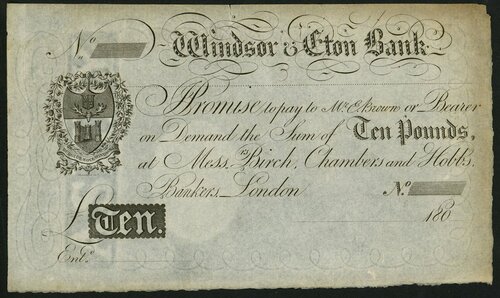 No
Windsor & Eton Bank
I Promise to pay to Mr. E. Brown or Bearer
on Demand the Sum of Ten Pounds,
at Messrs. Birch, Chambers and Hobbs,
Bankers, London No.
180
£ Ten.
Entd.